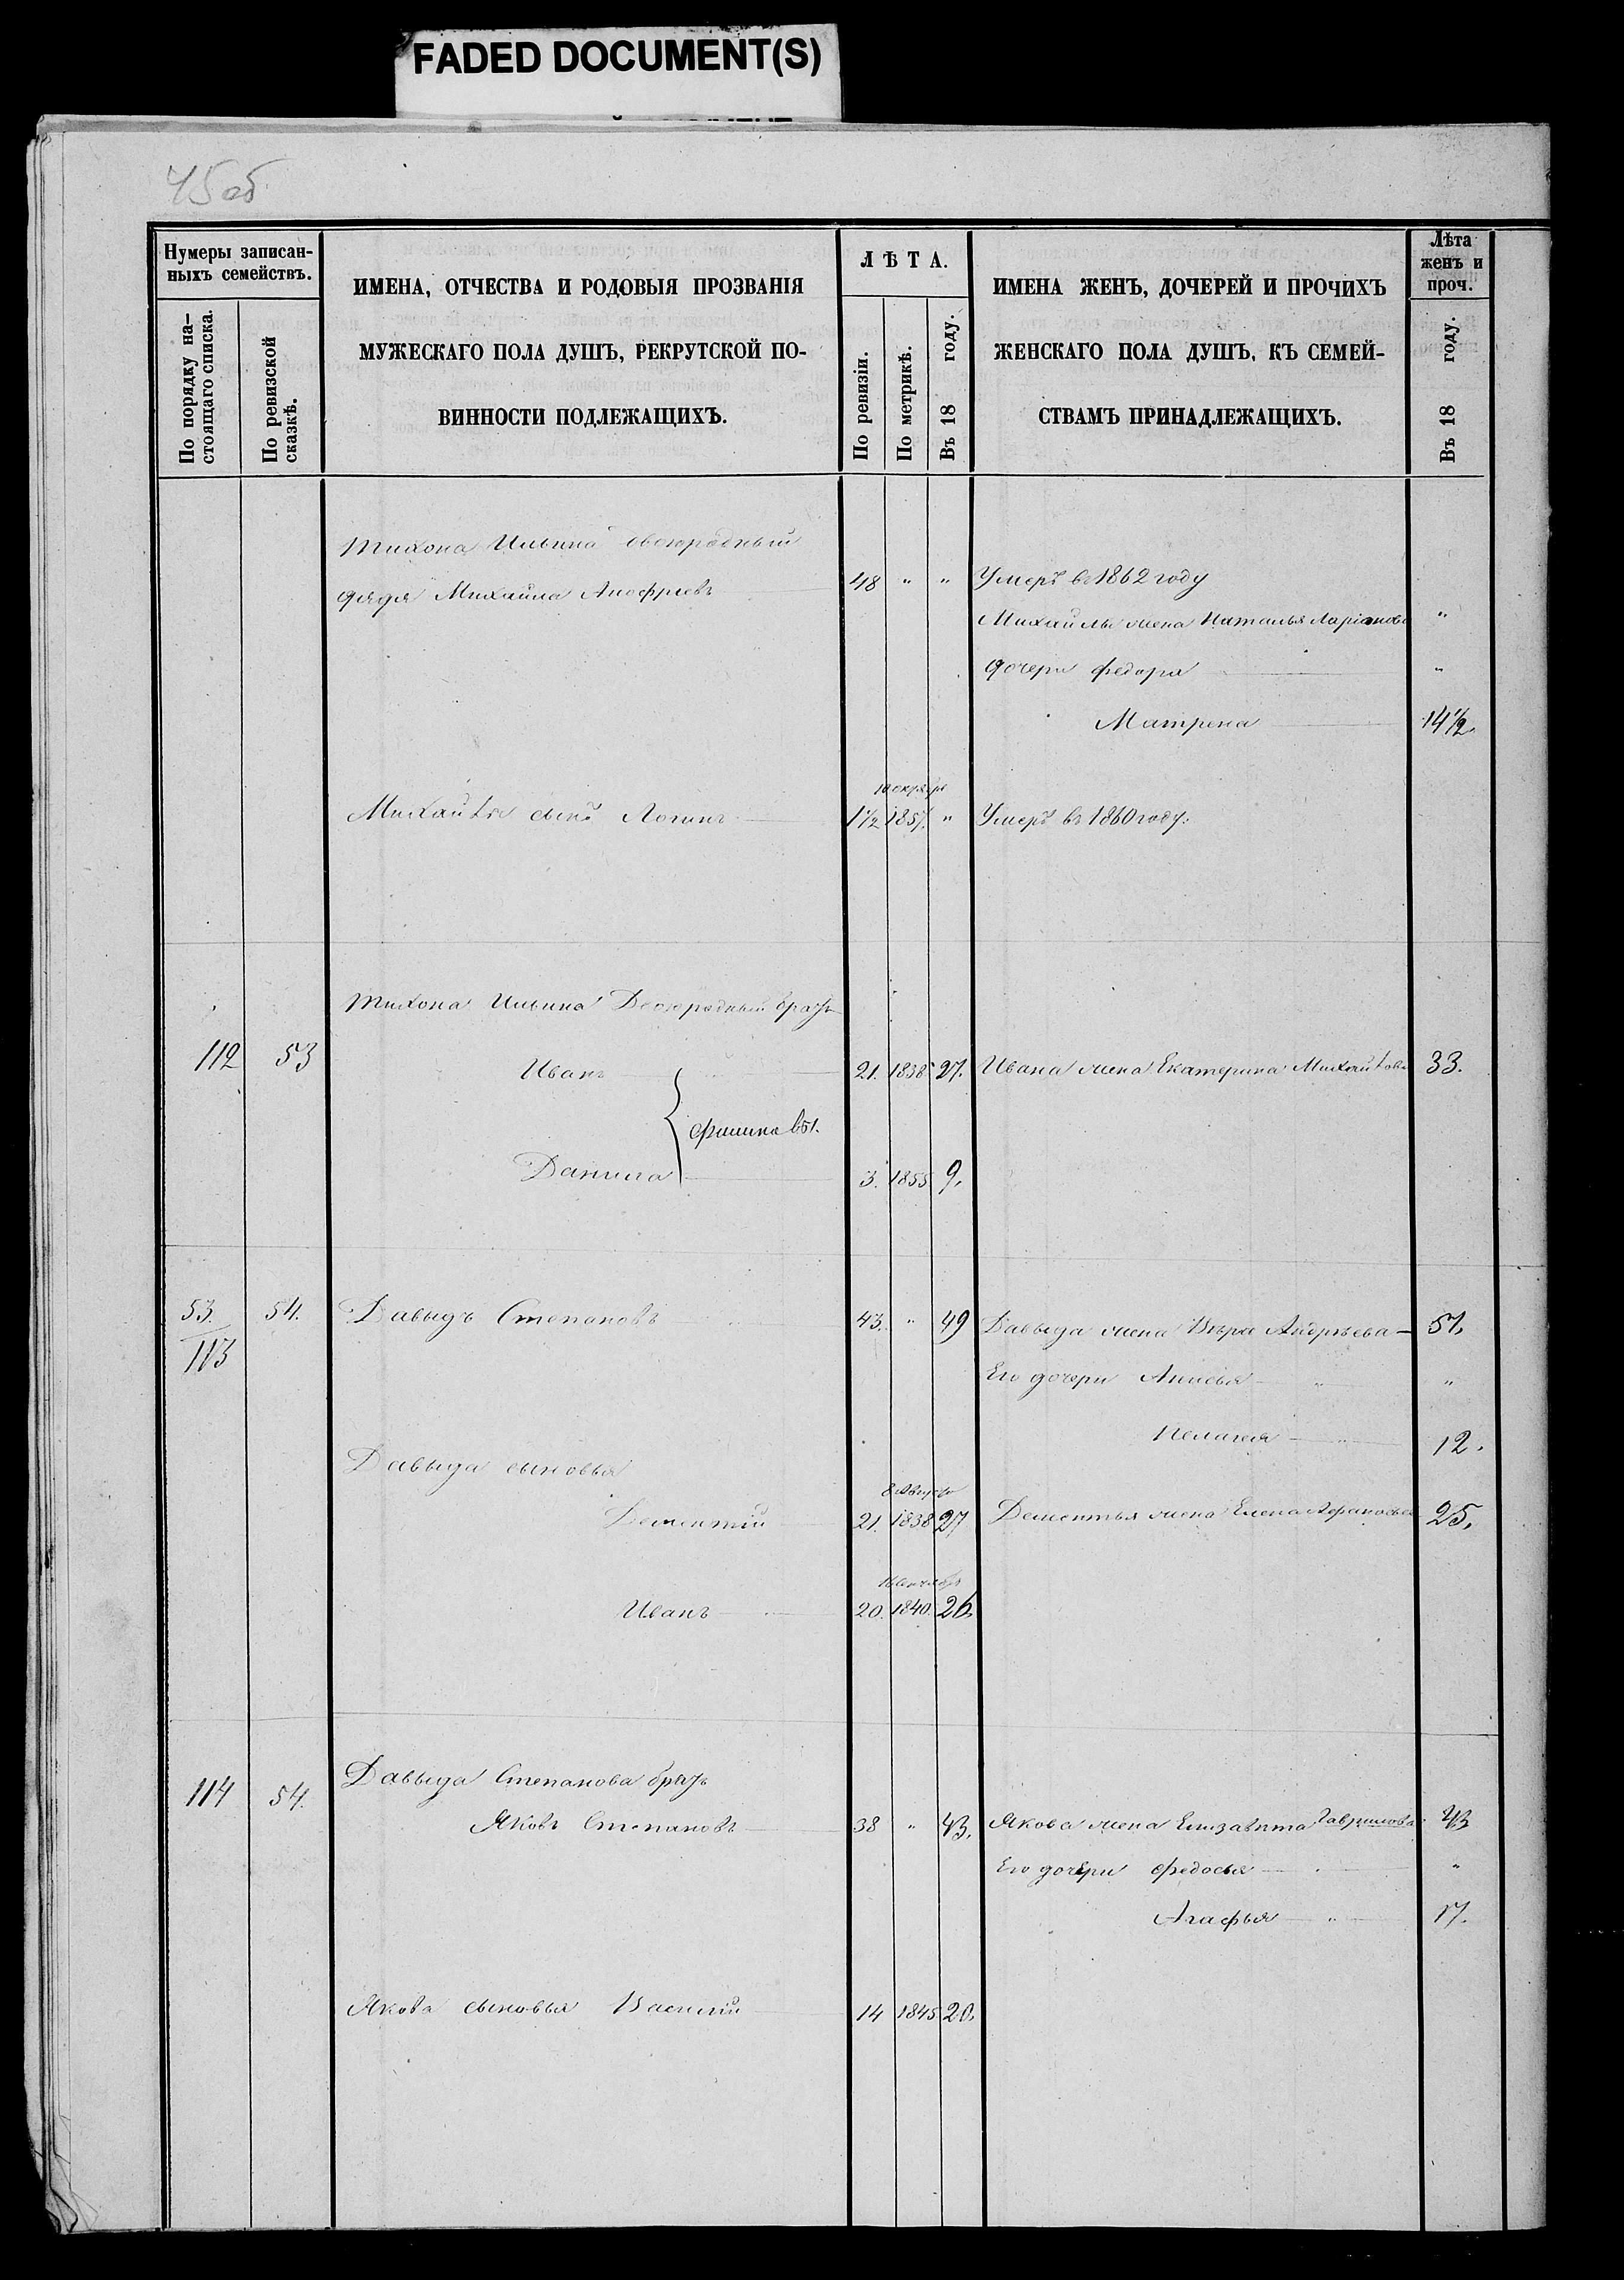 FADED DOCUMENT(S)
45 об
Нумеры записан-
ныхъ семействъ.
По порядку на-
стоящаго списка.
По ревизской
сказкѣ.
ИМЕНА, ОТЧЕСТВА И РОДОВЫЯ ПРОЗВАНІЯ
МУЖЕСКАГО ПОЛА ДУШЪ, РЕКРУТСКОЙ ПО-
ВИННОСТИ ПОДЛЕЖАЩИХЪ.
ЛѢТА.
По ревизіи.
По метрикѣ.
Въ 18 году.
ИМЕНА ЖЕНЪ, ДОЧЕРЕЙ И ПРОЧИХЪ
ЖЕНСКАГО ПОЛА ДУШЪ, КЪ СЕМЕЙ-
СТВАМЪ ПРИНАДЛЕЖАЩИХЪ.
Лѣта
женъ и
проч.
Въ 18 году.
Тихона Ильина двоюродный
дядя Михайла Анофріевъ 48 " " Умеръ въ 1862 году
Михайлы жена Наталья Ларіонова "
дочери Федора "
Матрена 14 1/2.
Михайлы сынъ Логинъ 1 1/2 1857. " Умеръ въ 1860 году.
Тихона Ильина Двоюродный братъ
112 53 Иванъ 21. 1838 27. Ивана жена Екатерина Михайлова 33.
Данила 3. 1855 9.
53. 54. Давыдъ Степановъ 43. " 49 Давыда жена Вѣра Андрѣева 51.
113
Его дочери Анисья "
Пелагея 12.
Давыда сыновья
8 Августа
Дементій 21. 1838 27 Дементья жена Елена 25.
Иванъ 20. 1840. 26.
Давыда Степанова братъ
114 54. Яковъ Степановъ 38 " 43. Якова жена Елизавѣта Гаврилова 43
Его дочери Федосья "
Агафья 17.
Якова сыновья Василій 14 1845 20.